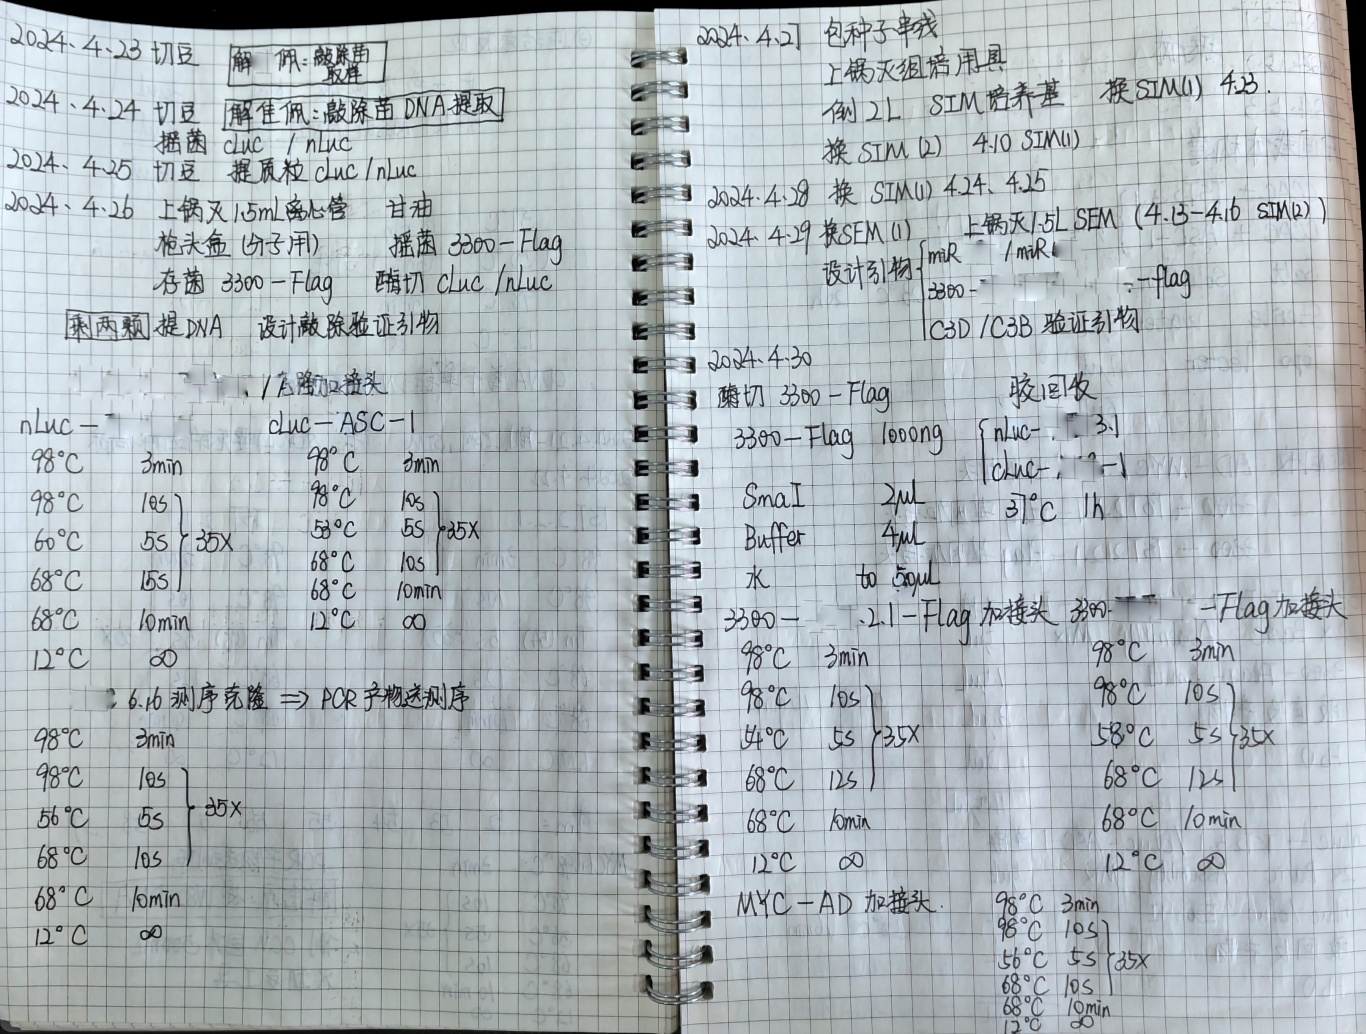 2024.4.23 切豆 解 佩:敲除菌
取样
2024.4.24 切豆 解佳佩:敲除菌DNA提取
摇菌 cLuc / nLuc
2024.4.25 切豆 提质粒 cLuc/nLuc
2024.4.26 上锅灭1.5mL离心管 甘油
枪头盒(分子用) 摇菌 3300-Flag
存菌 3300-Flag 酶切 cLuc/nLuc
剩两颗 提DNA 设计敲除验证引物
加接头
nLuc- cLuc-ASC-1
98°C 3min 98°C 3min
98°C 10s 98°C 10s
60°C 5s 35X 53°C 5s 35X
68°C 15s 68°C 10s
68°C 10min 68°C 10min
12°C ∞ 12°C ∞
6.16 测序克隆 ⇒ PCR产物送测序
98°C 3min
98°C 10s
56°C 5s 35X
68°C 10s
68°C 10min
12°C ∞
2024.4.27 包种子串线
上锅灭组培用具
倒2L SIM培养基 换SIM(1) 4.23.
换SIM(2) 4.10 SIM(1)
2024.4.28 换 SIM(1) 4.24、4.25
2024.4.29 换SEM(1) 上锅灭1.5L SEM (4.13-4.16 SIM(2))
设计引物 miR /miR
3300- -flag
C3D/C3B 验证引物
2024.4.30
酶切 3300-Flag 胶回收
3300-Flag 1000ng nLuc- 3.1
cLuc- -1
SmaI 2μL 37°C 1h
Buffer 4μL
水 to 50μL
3300- .2.1-Flag加接头 3300- -Flag加接头
98°C 3min 98°C 3min
98°C 10s 98°C 10s
54°C 5s 35X 58°C 5s 35X
68°C 12s 68°C 12s
68°C 10min 68°C 10min
12°C ∞ 12°C ∞
MYC-AD 加接头. 98°C 3min
98°C 10s
56°C 5s 35X
68°C 10s
68°C 10min
12°C ∞